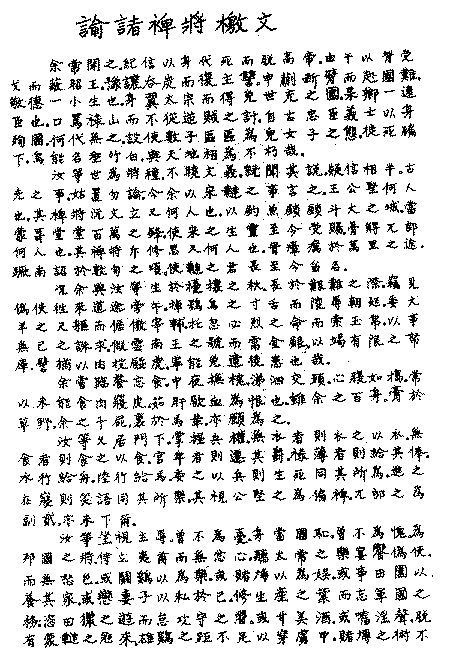 諭諸裨將檄文
余常聞之.紀信以身代死而脫高帝.由于以背受
戈而蔽昭王.豫讓吞炭而復主讐.申蒯斷臂而赴國難.
敬德一小生也.身翼太宗而得免世充之圍.杲卿一遠
臣也.口罵祿山而不從逆賊之計.自古忠臣義士以身
殉國.何代無之.設使數子區區為兒女子之態.徒死牖
下.烏能名垂竹白.與天地相為不朽哉.
汝等世為將種.不曉文義.既聞其說.疑信相半.古
先之事.姑置勿論.今余以宋韃之事言之.王公堅何人
也.其裨將阮文立又何人也.以釣魚鎖鎖斗大之城.當
蒙哥堂堂百萬之鋒.使宋之生靈至今受賜.骨待兀郎
何人也.其裨將斤修思又何人也.冒瘴厲於萬里之途.
蹶南詔於數旬之頃.使韃之君長至今留名.
況余與汝等生於擾攘之秋.長於艱難之際.竊見
偽使往來道途旁午.掉鴞烏之寸舌而陵辱朝廷.委犬
羊之尺軀而倨傲宰輔.托忽必烈之令而索玉帛.以事
無已之誅求.假雲南王之號而需金銀.以竭有限之帑
庫.譬猶以肉投餒虎.寧能免遺後患也哉.
余常臨餐忘食.中夜撫枕.涕泗交頤.心腹如搗.常
以未能食肉寢皮.茹肝飲血為恨也.雖余之百身.膏於
草野.余之千屍.裹於馬革.亦願為之.
汝等久居門下.掌握兵權.無衣者則衣之以衣.無
食者則食之以食.官卑者則遷其爵.俸薄者則給其俸.
水行給舟.陸行給馬.委之以兵則生死同其所為.進之
在寢則笑語同其所樂.其視公堅之為偏裨.兀郎之為
副貳.亦未下爾.
汝等坐視主辱.曾不為憂.身當國恥.曾不為愧.為
邦國之將.侍立夷酋而無忿心.聽太常之樂宴饗偽使.
而無怒色.或鬬鷄以為樂.或賭博以為娛.或事田園以
養其家.或戀妻子以私於己.修生產之業而忘軍國之
務.恣田獵之遊而怠攻守之習.或甘美酒.或嗜淫聲.脫
有蒙韃之寇來.雄鷄之距不足以穿虜甲.賭博之術不